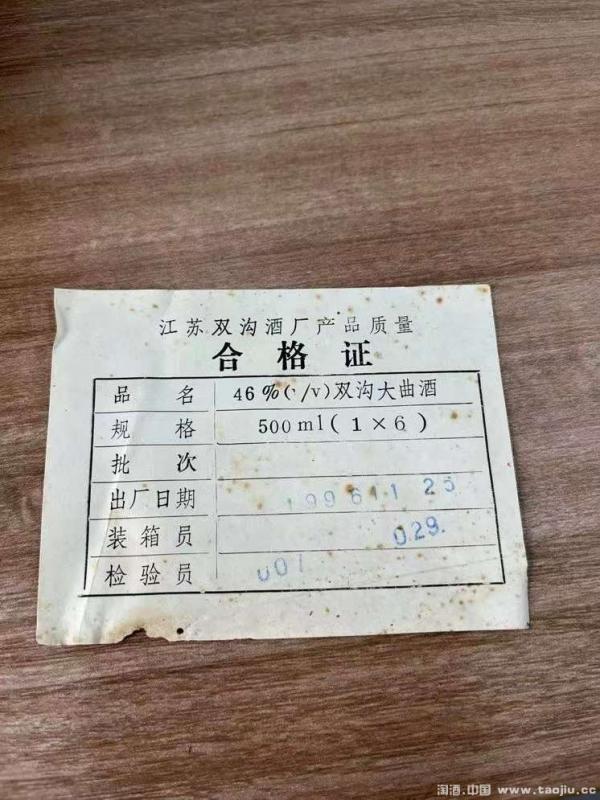 江苏双沟酒厂产品质量
合格证
品名 46%(v/v)双沟大曲酒
规格 500ml(1×6)
批次
出厂日期 19961125
装箱员 029.
检验员 001
淘酒.中国 www.taojiu.cc